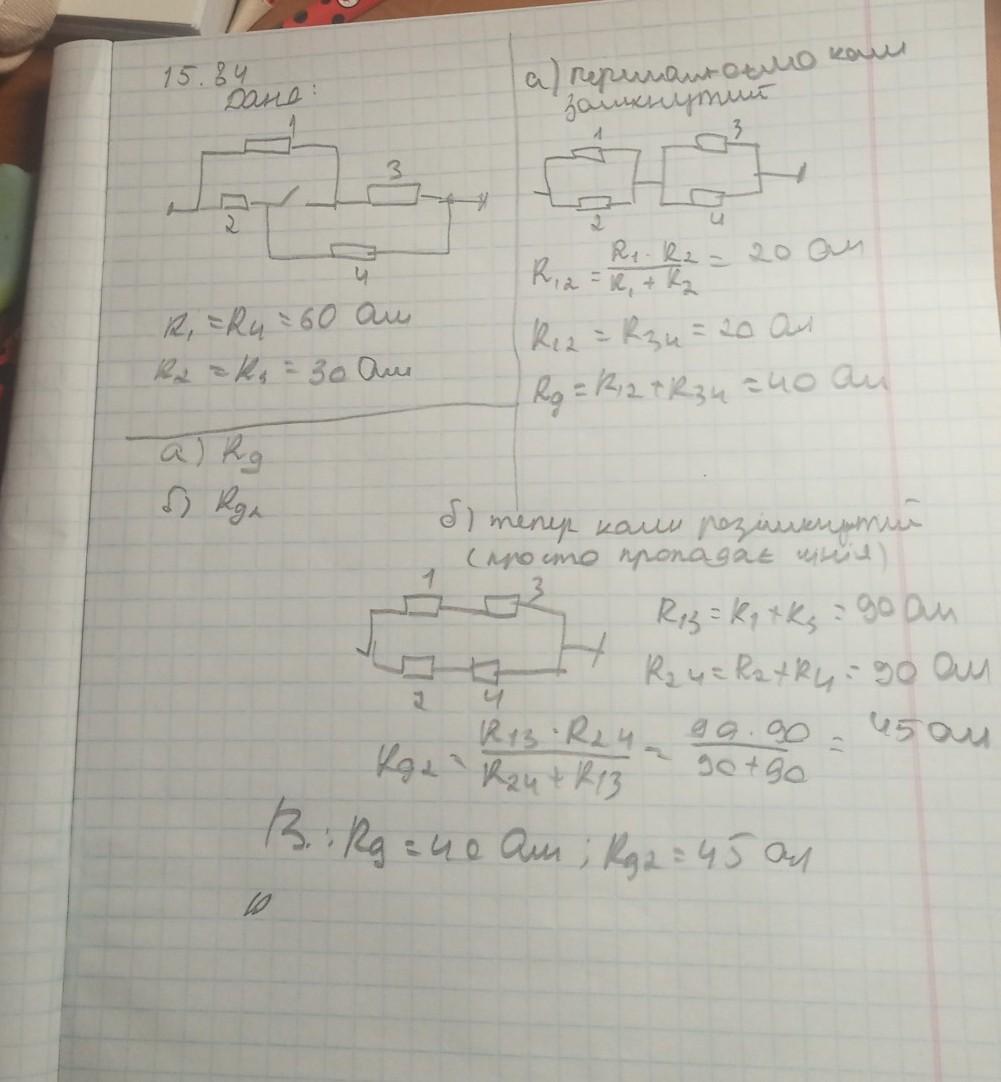 15.84
Дано:
1
2
3
4
R₁ = R₄ = 60 Ом
R₂ = R₃ = 30 Ом
а) Rg
б) Rg₂
а) коли
замкнутий
1
3
2
4
R₁₂ = R₁ · R₂ / R₁ + R₂ = 20 Ом
R₁₂ = R₃₄ = 20 Ом
Rg = R₁₂ + R₃₄ = 40 Ом
б) тепер коли розімкнутий
(просто пропадає лінія)
1
3
2
4
R₁₃ = R₁ + R₃ = 90 Ом
R₂₄ = R₂ + R₄ = 90 Ом
Rg₂ = R₁₃ · R₂₄ / R₂₄ + R₁₃ = 90 · 90 / 90 + 90 = 45 Ом
В.: Rg = 40 Ом; Rg₂ = 45 Ом